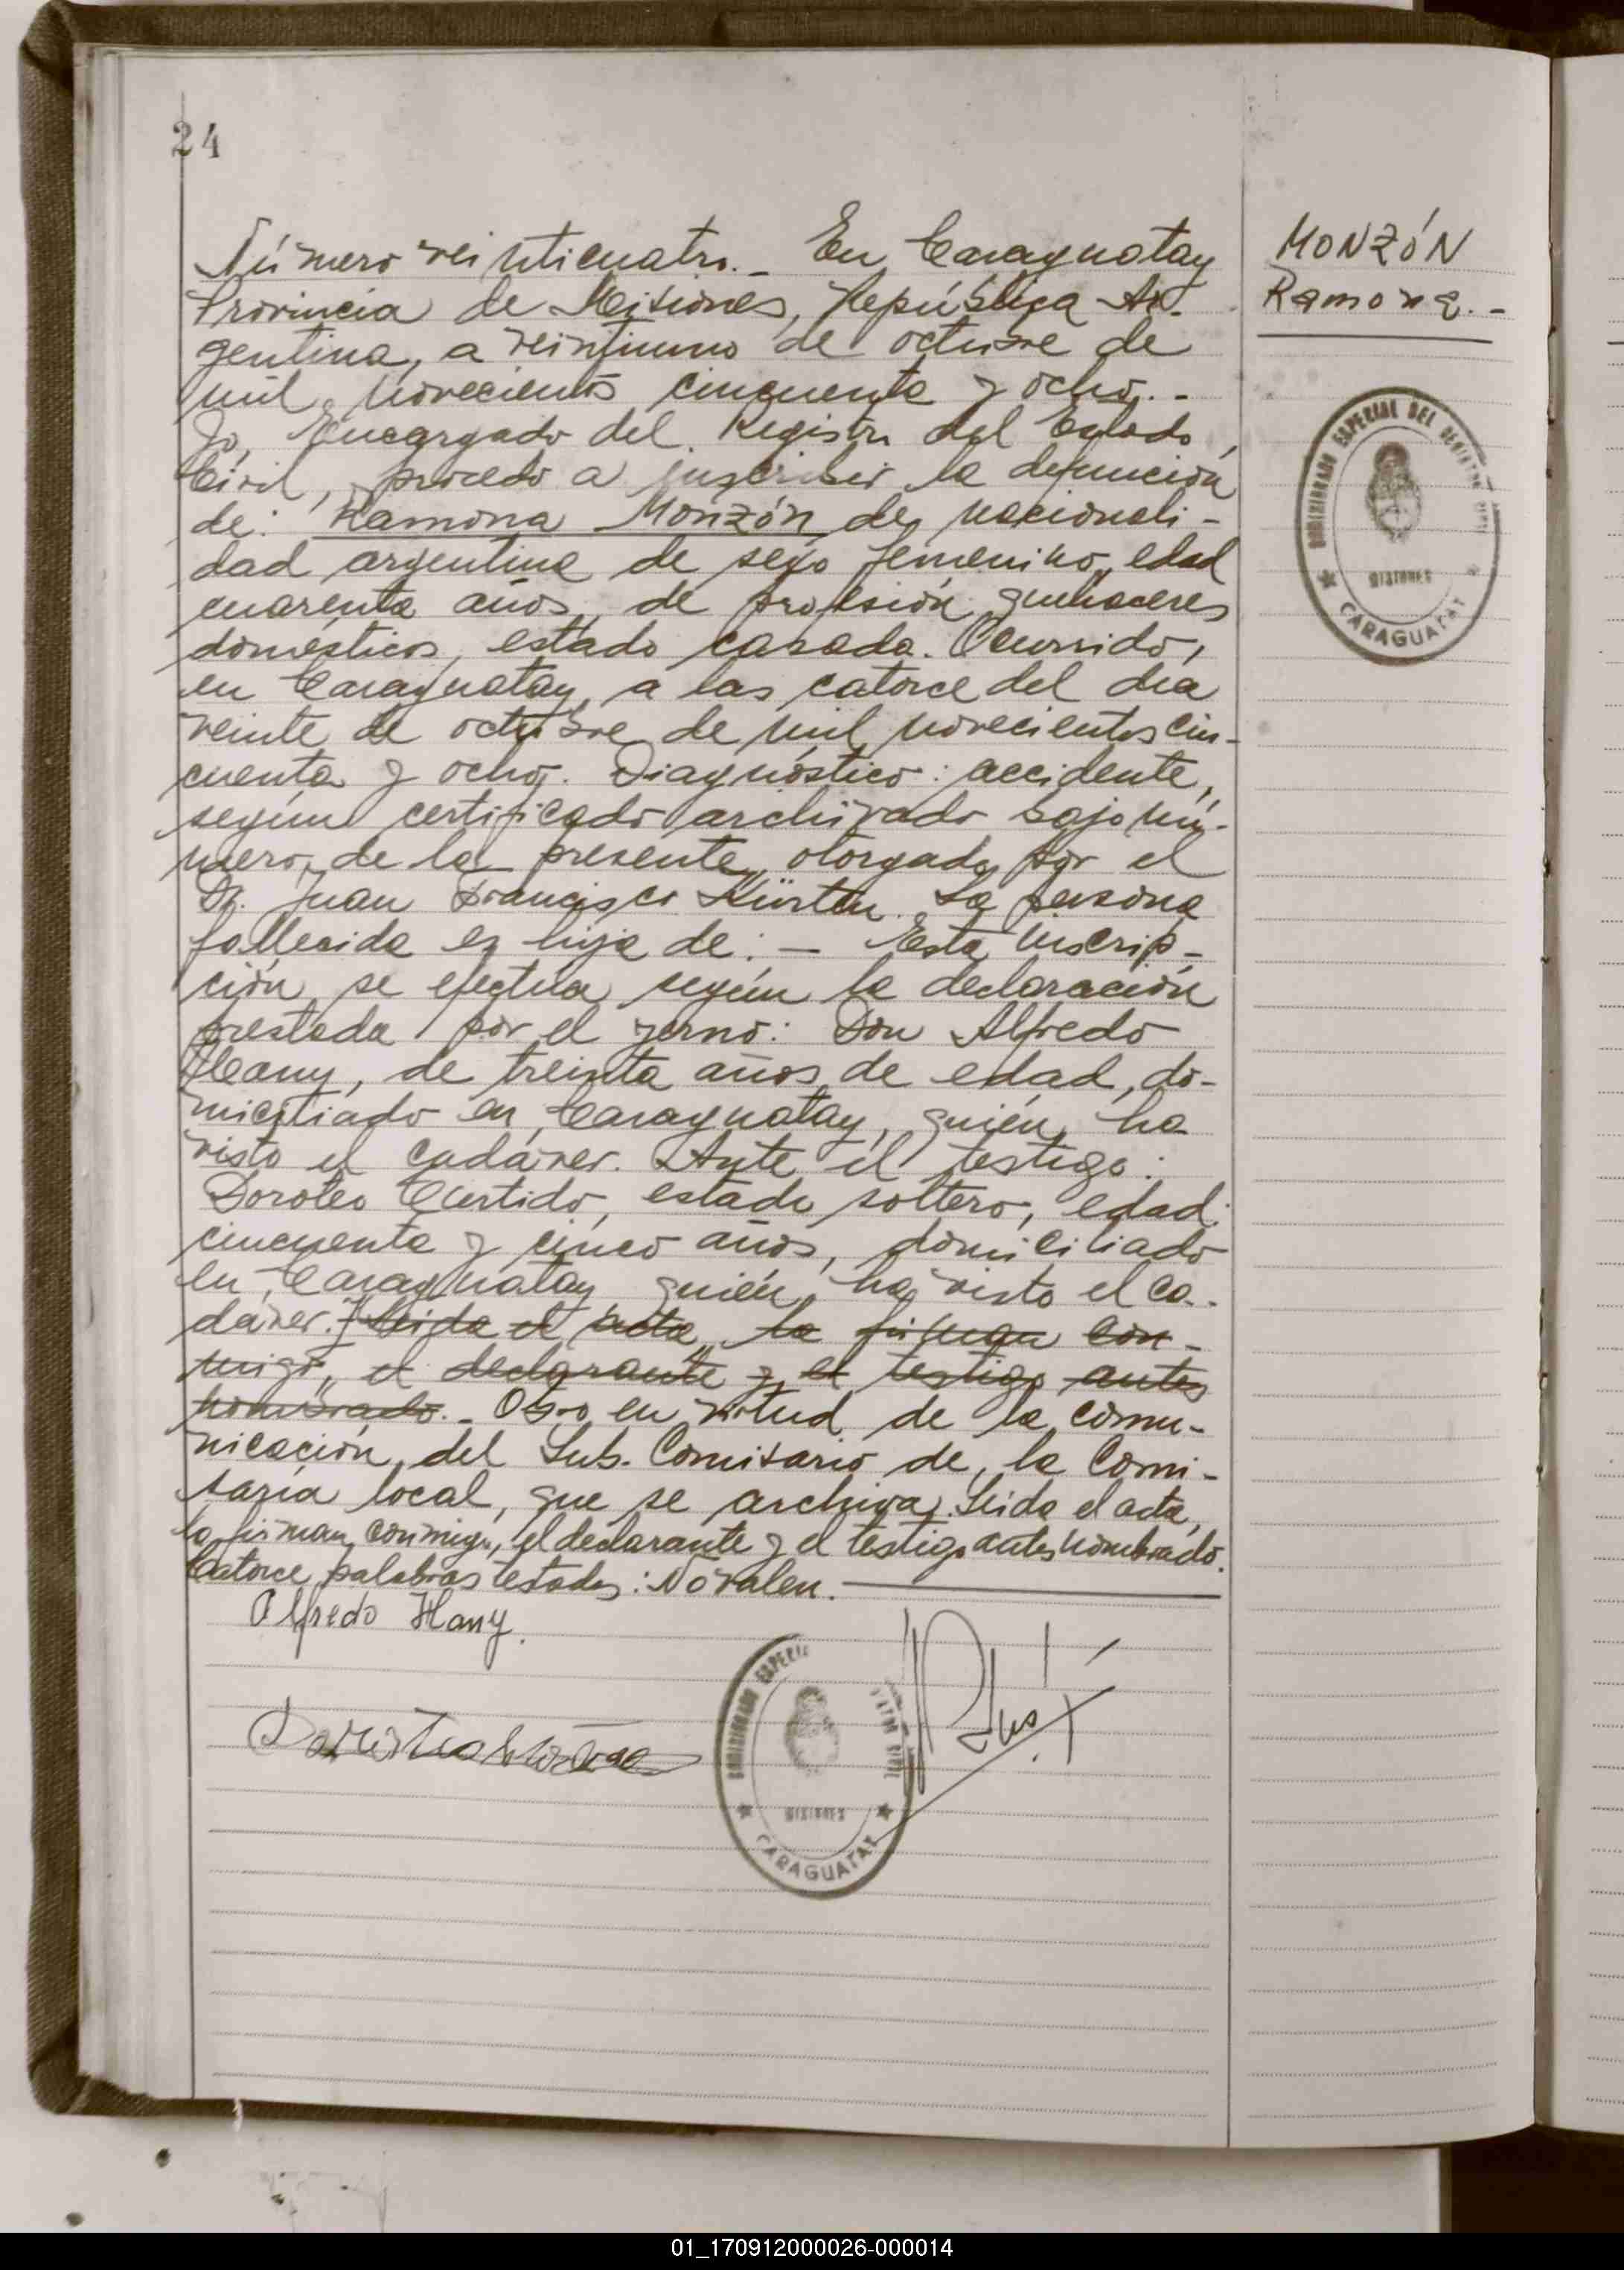 24
Número veinticuatro.- En Caraguatay
Provincia de Misiones, República Ar-
gentina, a veintiuno de octubre de
mil novecientos cincuenta y ocho.-
Yo, Encargado del Registro del Estado
Civil, procedo a inscribir la defunción
de: Ramona Monzón de nacionali-
dad argentina de sexo femenino, edad
cuarenta años, de profesión quehaceres
domésticos, estado casada. Ocurrido,
en Caraguatay, a las catorce del dia
veinte de octubre de mil novecientos cin-
cuenta y ocho. Diagnóstico: accidente,
según certificado archivado bajo nú-
mero, de la presente, otorgado por el
Dr. Juan Francisco Kürten. La persona
fallecida es hija de: — Esta inscrip-
ción se efectúa según la declaración
prestada por el yerno: Don Alfredo
Hany, de treinta años de edad, do-
miciliado en Caraguatay, quién ha
visto el cadáver. Ante el testigo:
Doroteo, estado soltero, edad:
cincuenta y cinco años, domiciliado
en Caraguatay quién ha visto el ca-
dáver. Leida el acta, la firman con-
migo, el declarante y el testigo antes
nombrado.- Ob-o en virtud de la comu-
nicación, del Sub. Comisario de, la Comi-
saría local, que se archiva. Leida el acta,
la firman conmigo, el declarante y el testigo antes nombrado.
Catorce palabras testadas: No valen.
Alfredo Hany
MONZÓN
Ramona.-
ESPECIAL DEL REGISTRO CIVIL
MISIONES
CARAGUATAY
ESPECIAL
MISIONES
CARAGUATAY
01_170912000026-000014